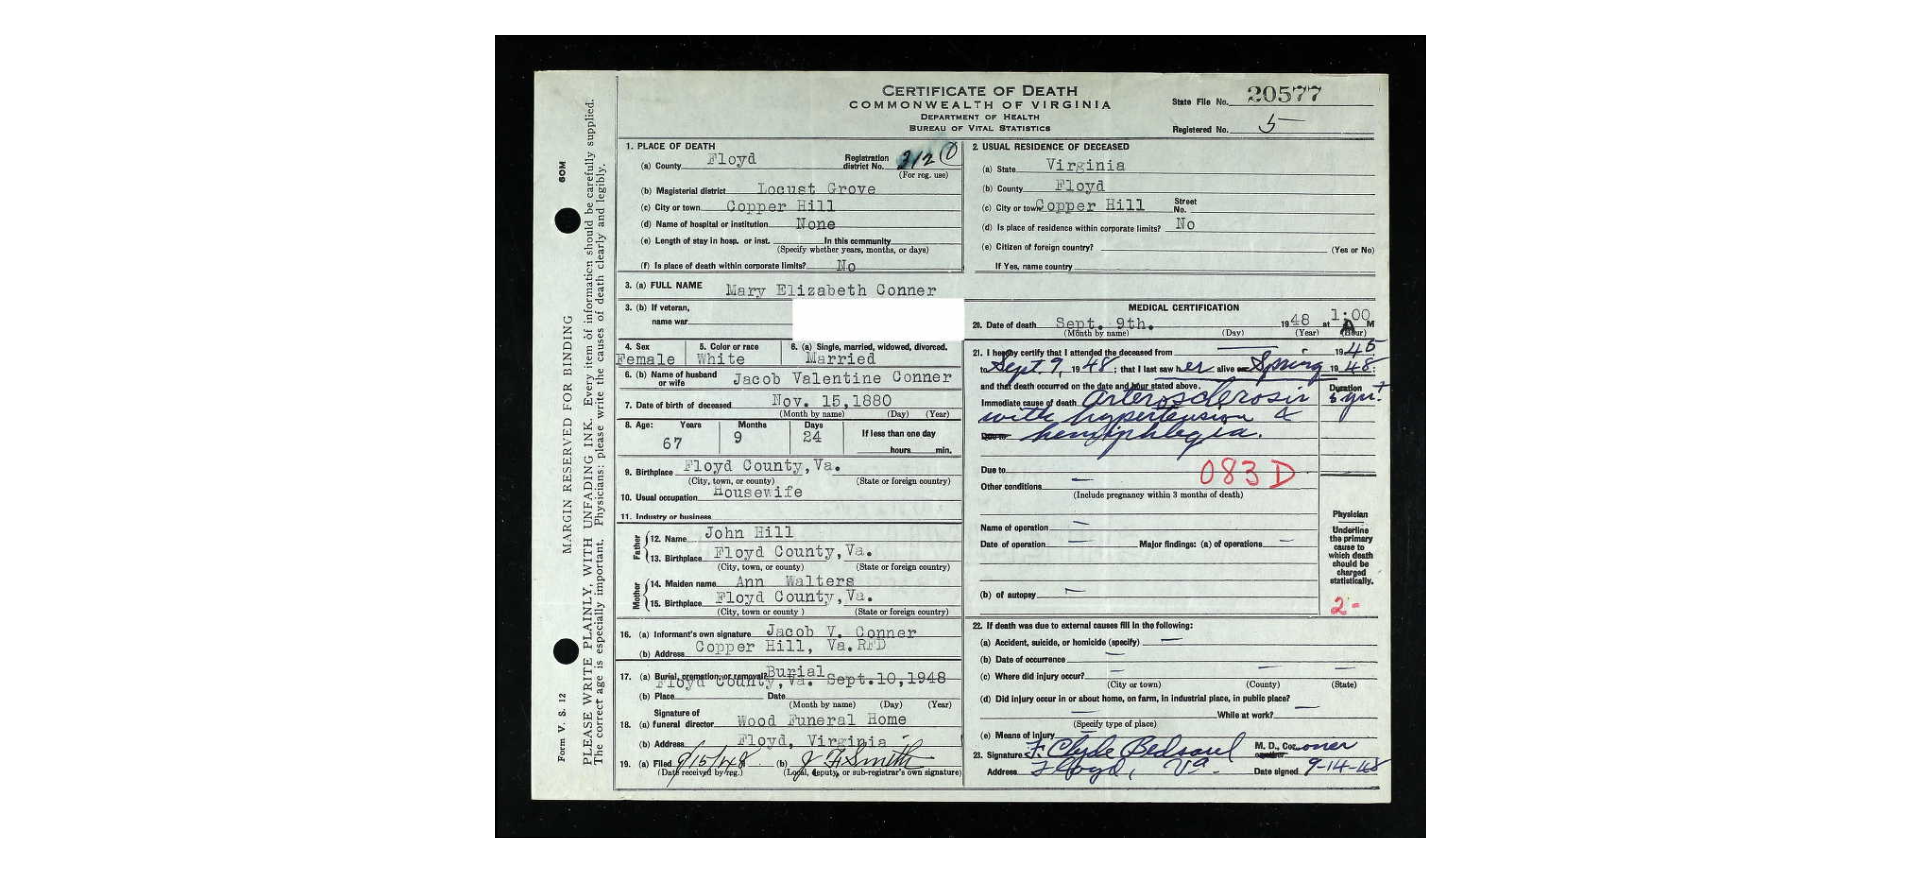 CERTIFICATE OF DEATH
COMMONWEALTH OF VIRGINIA
DEPARTMENT OF HEALTH
BUREAU OF VITAL STATISTICS
State File No. 20577
Registered No. 5
MARGIN RESERVED FOR BINDING
PLEASE WRITE PLAINLY, WITH UNFADING INK. Every item of information should be carefully supplied.
The correct age is especially important. Physicians: please write the causes of death clearly and legibly.
Form V. S. 12
60M
1. PLACE OF DEATH
(a) County Floyd Registration district No. 2120
(For reg. use)
(b) Magisterial district Locust Grove
(c) City or town Copper Hill
(d) Name of hospital or institution None
(e) Length of stay in hosp. or inst. In this community
(Specify whether years, months, or days)
(f) Is place of death within corporate limits? No
2. USUAL RESIDENCE OF DECEASED
(a) State Virginia
(b) County Floyd
(c) City or town Copper Hill Street No.
(d) Is place of residence within corporate limits? No
(e) Citizen of foreign country? (Yes or No)
If Yes, name country
3. (a) FULL NAME Mary Elizabeth Conner
3. (b) If veteran,
name war
4. Sex 5. Color or race 6. (a) Single, married, widowed, divorced.
Female White Married
6. (b) Name of husband or wife Jacob Valentine Conner
7. Date of birth of deceased Nov. 15,1880
(Month by name) (Day) (Year)
8. Age: Years Months Days If less than one day
67 9 24 hours min.
9. Birthplace Floyd County,Va.
(City, town, or county) (State or foreign country)
10. Usual occupation Housewife
11. Industry or business
Father
12. Name John Hill
13. Birthplace Floyd County,Va.
(City, town, or county) (State or foreign country)
Mother
14. Maiden name Ann Walters
15. Birthplace Floyd County,Va.
(City, town or county) (State or foreign country)
16. (a) Informant's own signature Jacob V. Conner
(b) Address Copper Hill, Va.RFD
17. (a) Burial, cremation, or removal? Burial
Floyd County,Va. Sept.10,1948
(b) Place Date
(Month by name) (Day) (Year)
Signature of
18. (a) funeral director Wood Funeral Home
(b) Address Floyd, Virginia
19. (a) Filed 9/15/48 (b) J F Smith
(Date received by reg.) (Local, deputy, or sub-registrar's own signature)
MEDICAL CERTIFICATION
20. Date of death Sept. 9th. 1948 at 1:00 A M
(Month by name) (Day) (Year) (Hour)
21. I hereby certify that I attended the deceased from 1945
to Sept. 9, 1948; that I last saw her alive on Spring 1948;
and that death occurred on the date and hour stated above. Duration
Immediate cause of death arterosclerosis 5 yrs?
with hypertension &
Due to hemiphlegia.
Due to 083D
Other conditions
(Include pregnancy within 3 months of death)
Name of operation
Date of operation Major findings: (a) of operations
(b) of autopsy
Physician
Underline
the primary
cause to
which death
should be
charged
statistically.
2-
22. If death was due to external causes fill in the following:
(a) Accident, suicide, or homicide (specify)
(b) Date of occurrence
(c) Where did injury occur?
(City or town) (County) (State)
(d) Did injury occur in or about home, on farm, in industrial place, in public place?
While at work?
(Specify type of place)
(e) Means of injury
23. Signature F. Clyde Bedsaul M. D., Coroner
Address Floyd, Va. Date signed 9-14-48